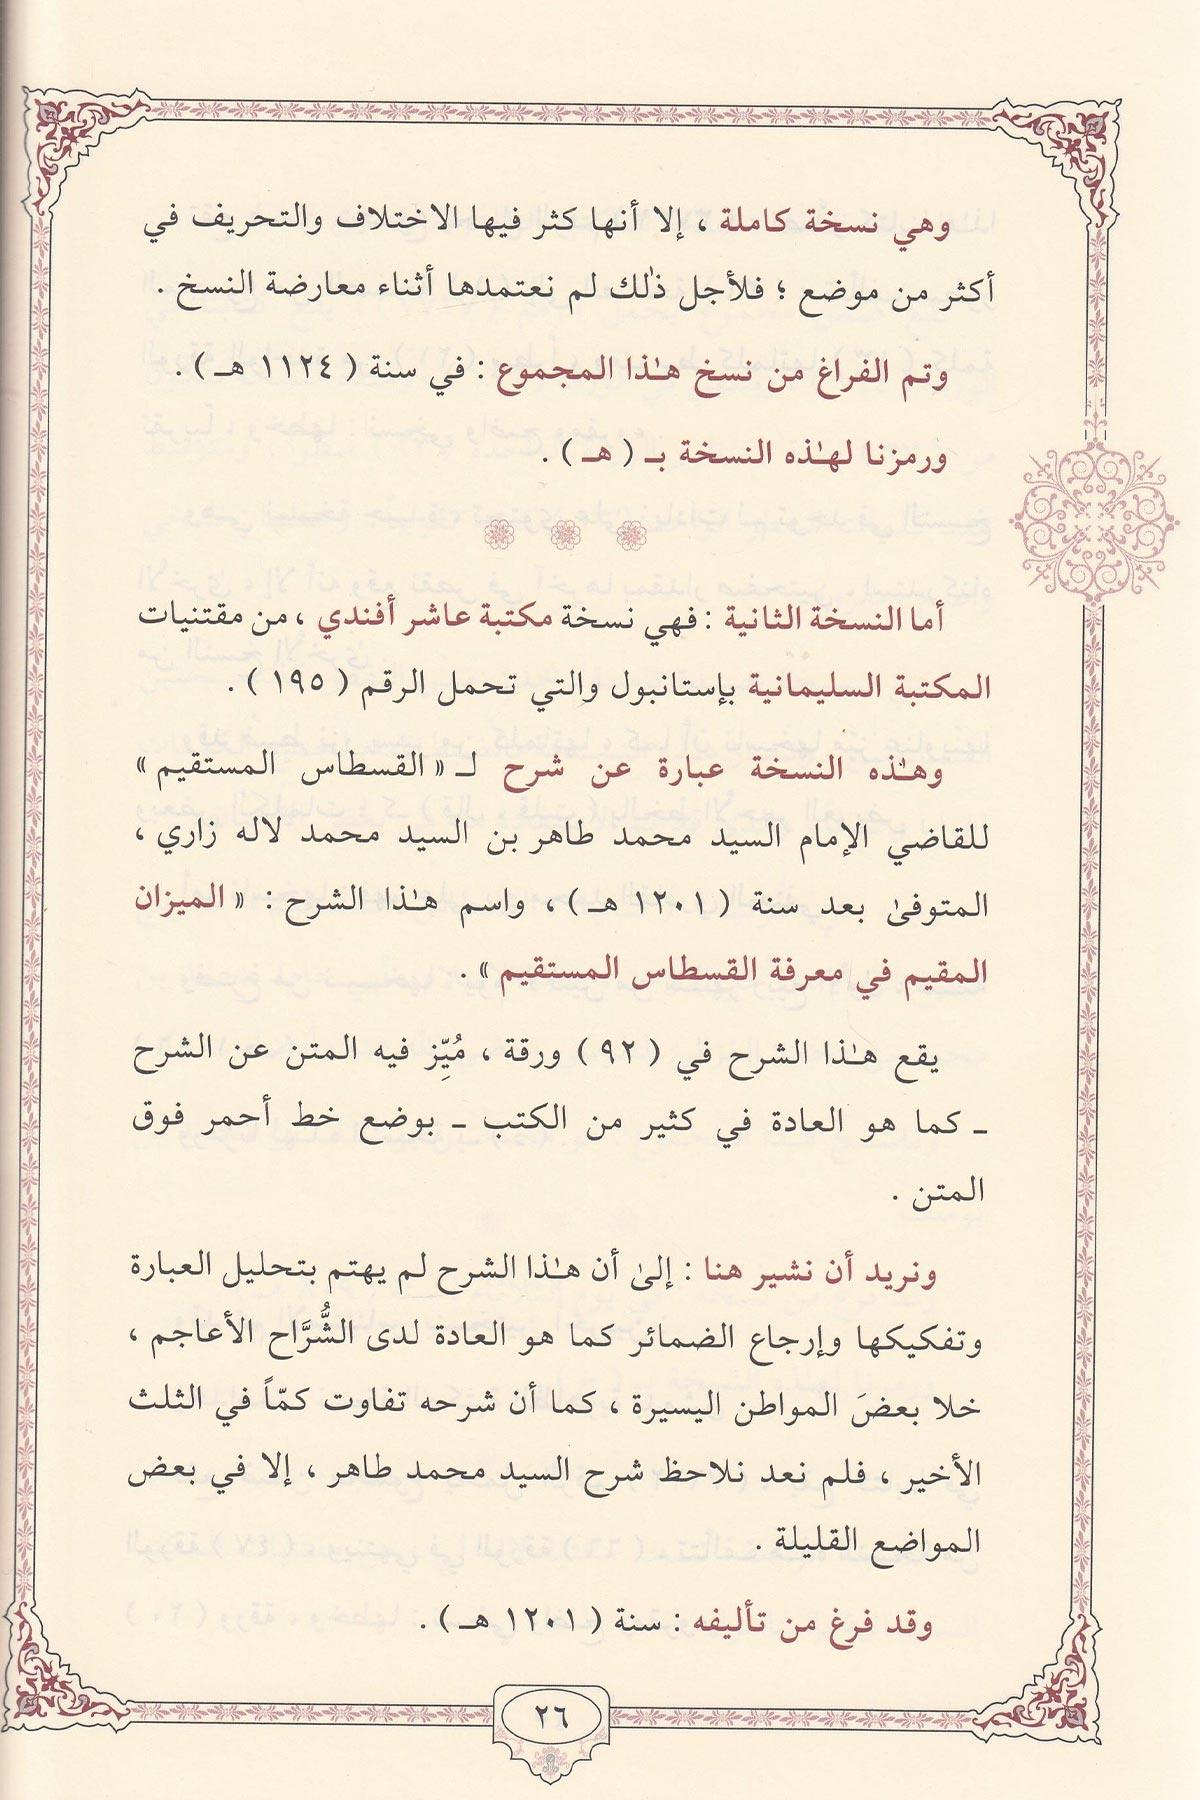 وهي نسخة كاملة ، إلا أنها كثر فيها الاختلاف والتحريف في
أكثر من موضع ؛ فلأجل ذٰلك لم نعتمدها أثناء معارضة النسخ .
وتم الفراغ من نسخ هـٰذا المجموع : في سنة ( ١١٢٤ هـ ) .
ورمزنا لهـٰذه النسخة بـ ( هـ ) .
أما النسخة الثانية : فهي نسخة مكتبة عاشر أفندي ، من مقتنيات
المكتبة السليمانية بإستانبول والتي تحمل الرقم ( ١٩٥ ) .
وهـٰذه النسخة عبارة عن شرح لـ « القسطاس المستقيم »
للقاضي الإمام السيد محمد طاهر بن السيد محمد لاله زاري ،
المتوفىٰ بعد سنة ( ١٢٠١ هـ ) ، واسم هـٰذا الشرح : « الميزان
المقيم في معرفة القسطاس المستقيم » .
يقع هـٰذا الشرح في ( ٩٢ ) ورقة ، مُيِّز فيه المتن عن الشرح
ـ كما هو العادة في كثير من الكتب ـ بوضع خط أحمر فوق
المتن .
ونريد أن نشير هنا : إلىٰ أن هـٰذا الشرح لم يهتم بتحليل العبارة
وتفكيكها وإرجاع الضمائر كما هو العادة لدى الشُّرَّاح الأعاجم ،
خلا بعضَ المواطن اليسيرة ، كما أن شرحه تفاوت كمّاً في الثلث
الأخير ، فلم نعد نلاحظ شرح السيد محمد طاهر ، إلا في بعض
المواضع القليلة .
وقد فرغ من تأليفه : سنة ( ١٢٠١ هـ ) .
٢٦